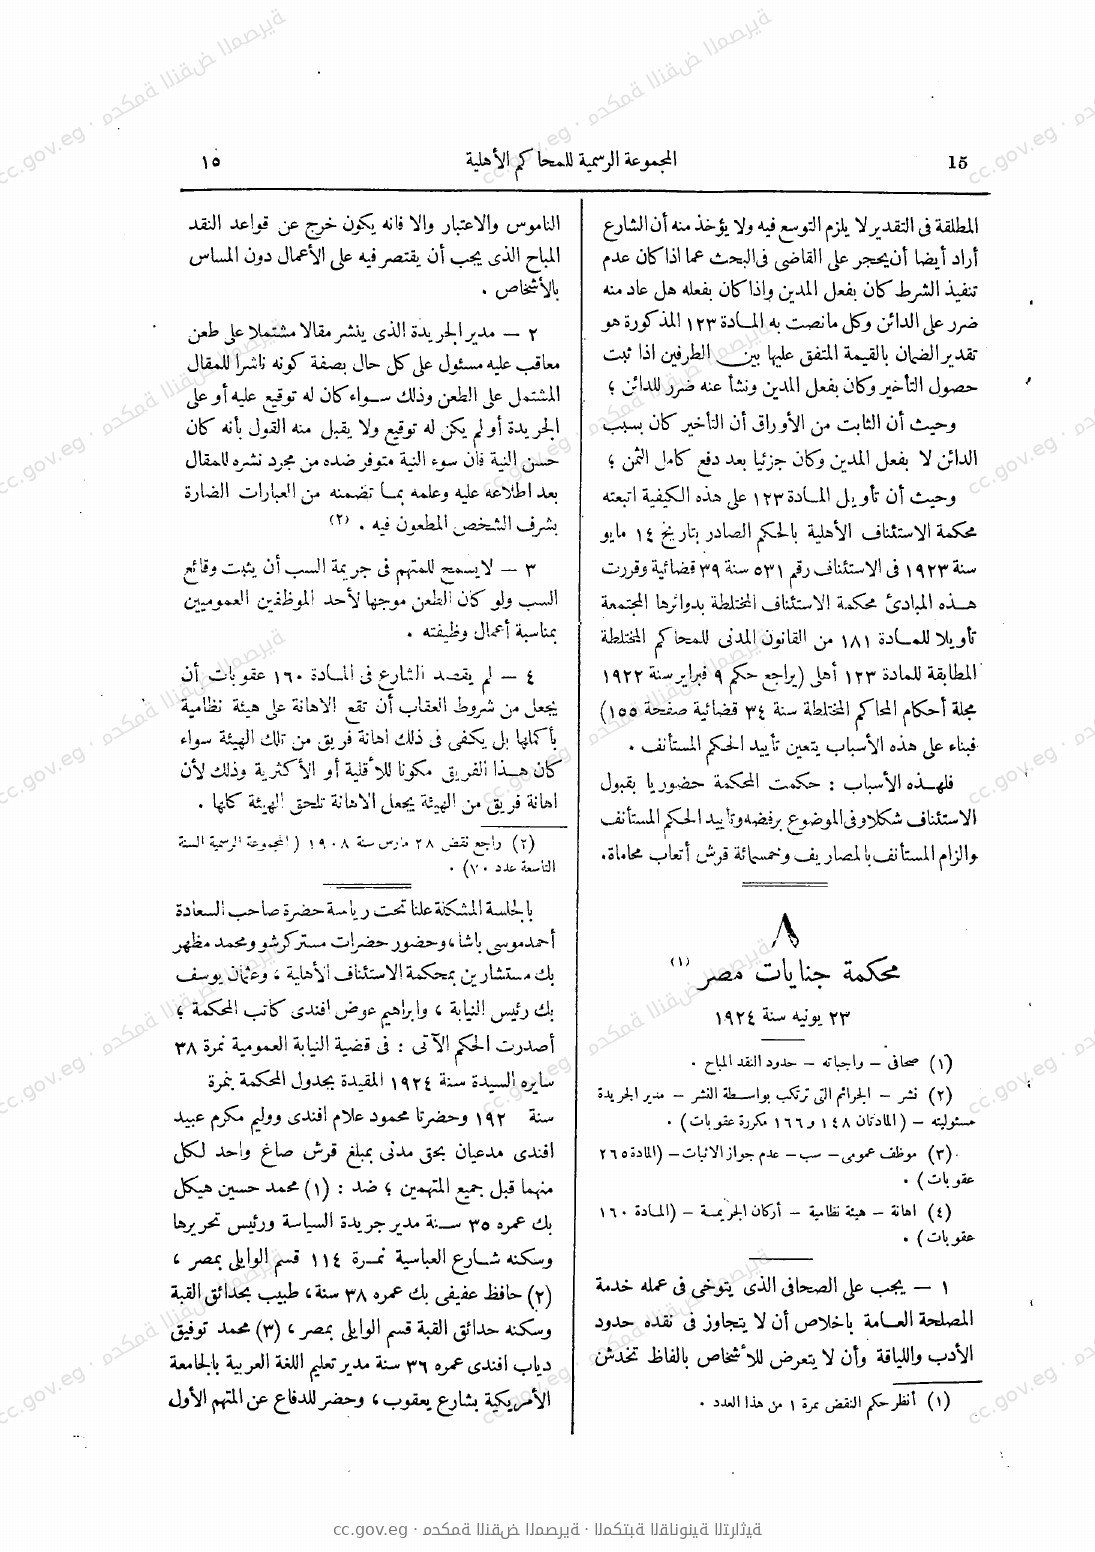 15
المجموعة الرسمية للمحاكم الأهلية
١٥
المطلقة فى التقدير لا يلزم التوسع فيه ولا يؤخذ منه أن الشارع
أراد أيضا أن يحجر على القاضى فى البحث عما اذا كان عدم
تنفيذ الشرط كان بفعل المدين واذا كان بفعله هل عاد منه
ضرر على الدائن وكل ما نصت به المادة ١٢٣ المذكورة هو
تقدير الضمان بالقيمة المتفق عليها بين الطرفين اذا ثبت
حصول التأخير وكان بفعل المدين ونشأ عنه ضرر للدائن ؛
وحيث أن الثابت من الأوراق أن التأخير كان بسبب
الدائن لا بفعل المدين وكان جزئيا بعد دفع كامل الثمن ؛
وحيث أن تأويل المادة ١٢٣ على هذه الكيفية اتبعته
محكمة الاستئناف الأهلية بالحكم الصادر بتاريخ ١٤ مايو
سنة ١٩٢٣ فى الاستئناف رقم ٥٣١ سنة ٣٩ قضائية وقررت
هذه المبادئ محكمة الاستئناف المختلطة بدوائرها المجتمعة
تأويلا للمادة ١٨١ من القانون المدنى للمحاكم المختلطة
المطابقة للمادة ١٢٣ أهلى (يراجع حكم ٩ فبراير سنة ١٩٢٢
مجلة أحكام المحاكم المختلطة سنة ٣٤ قضائية صفحة ١٥٥)
فبناء على هذه الأسباب يتعين تأييد الحكم المستأنف .
فلهذه الأسباب : حكمت المحكمة حضوريا بقبول
الاستئناف شكلا وفى الموضوع برفضه وتأييد الحكم المستأنف
والزام المستأنف بالمصاريف وخمسمائة قرش أتعاب محاماة.
٨
محكمة جنايات مصر (١)
٢٣ يونيه سنة ١٩٢٤
(١) صحافى – واجباته – حدود النقد المباح .
(٢) نشر – الجرائم التى ترتكب بواسطة النشر – مدير الجريدة
مسئوليته – (المادتان ١٤٨ و ١٦٦ مكررة عقوبات) .
(٣) موظف عمومى – سب – عدم جواز الاثبات – (المادة ٢٦٥
عقوبات) .
(٤) اهانة – هيئة نظامية – أركان الجريمة – (المادة ١٦٠
عقوبات) .
١ – يجب على الصحافى الذى يتوخى فى عمله خدمة
المصلحة العامة باخلاص أن لا يتجاوز فى نقده حدود
الأدب واللياقة وأن لا يتعرض للأشخاص بالفاظ تخدش
(١) أنظر حكم النقض نمرة ١ من هذا العدد .
الناموس والاعتبار والا فانه يكون خرج عن قواعد النقد
المباح الذى يجب أن يقتصر فيه على الأعمال دون المساس
بالأشخاص .
٢ – مدير الجريدة الذى ينشر مقالا مشتملا على طعن
معاقب عليه مسئول على كل حال بصفة كونه ناشرا للمقال
المشتمل على الطعن وذلك سواء كان له توقيع عليه أو على
الجريدة أو لم يكن له توقيع ولا يقبل منه القول بأنه كان
حسن النية فان سوء النية متوفر ضده من مجرد نشره للمقال
بعد اطلاعه عليه وعلمه بما تضمنه من العبارات الضارة
بشرف الشخص المطعون فيه . (٢)
٣ – لا يسمح للمتهم فى جريمة السب أن يثبت وقائع
السب ولو كان الطعن موجها لأحد الموظفين العموميين
بمناسبة أعمال وظيفته .
٤ – لم يقصد الشارع فى المادة ١٦٠ عقوبات أن
يجعل من شروط العقاب أن تقع الاهانة على هيئة نظامية
بأكملها بل يكفى فى ذلك اهانة فريق من تلك الهيئة سواء
كان هذا الفريق مكونا للأقلية أو الأكثرية وذلك لأن
اهانة فريق من الهيئة يجعل الاهانة تلحق الهيئة كلها .
(٢) راجع نقض ٢٨ مارس سنة ١٩٠٨ (المجموعة الرسمية السنة
التاسعة عدد ٧٠) .
بالجلسة المشكلة علنا تحت رياسة حضرة صاحب السعادة
أحمد موسى باشا، وحضور حضرات مستر كرشو ومحمد مظهر
بك مستشارين بمحكمة الاستئناف الأهلية ، وعثمان يوسف
بك رئيس النيابة ، وابراهيم عوض افندى كاتب المحكمة ؛
أصدرت الحكم الآتى : فى قضية النيابة العمومية نمرة ٣٨
سايره السيدة سنة ١٩٢٤ المقيدة بجدول المحكمة بنمرة
سنة ١٩٢ وحضرتا محمود علام افندى ووليم مكرم عبيد
افندى مدعيان بحق مدنى بمبلغ قرش صاغ واحد لكل
منهما قبل جميع المتهمين ؛ ضد : (١) محمد حسين هيكل
بك عمره ٣٥ سنة مدير جريدة السياسة ورئيس تحريرها
وسكنه شارع العباسية نمرة ١١٤ قسم الوايلى بمصر ،
(٢) حافظ عفيفى بك عمره ٣٨ سنة، طبيب بحدائق القبة
وسكنه حدائق القبة قسم الوايلى بمصر ، (٣) محمد توفيق
دياب افندى عمره ٣٦ سنة مدير تعليم اللغة العربية بالجامعة
الأمريكية بشارع يعقوب ، وحضر للدفاع عن المتهم الأول
cc.gov.eg · محكمة النقض المصرية · المكتبة القانونية التراثية